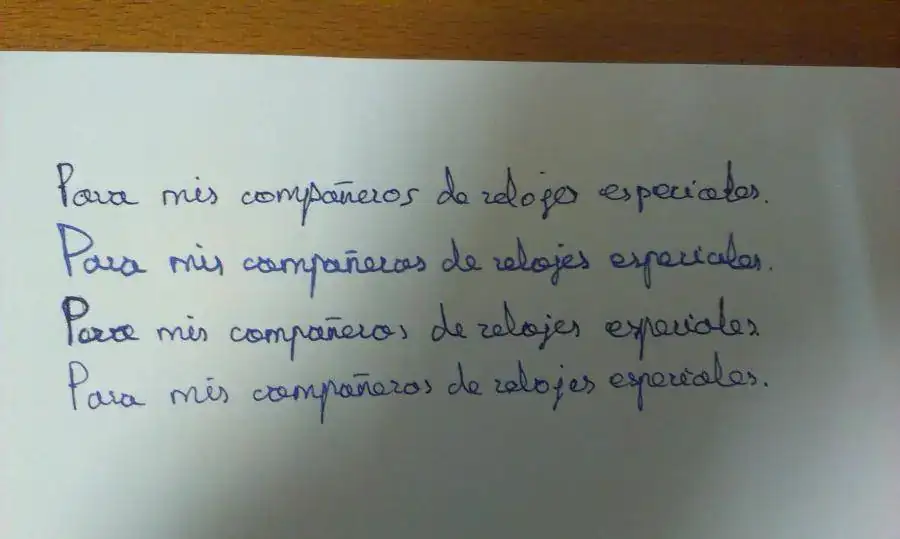 Para mis compañeros de relojes especiales.
Para mis compañeros de relojes especiales.
Para mis compañeros de relojes especiales.
Para mis compañeros de relojes especiales.